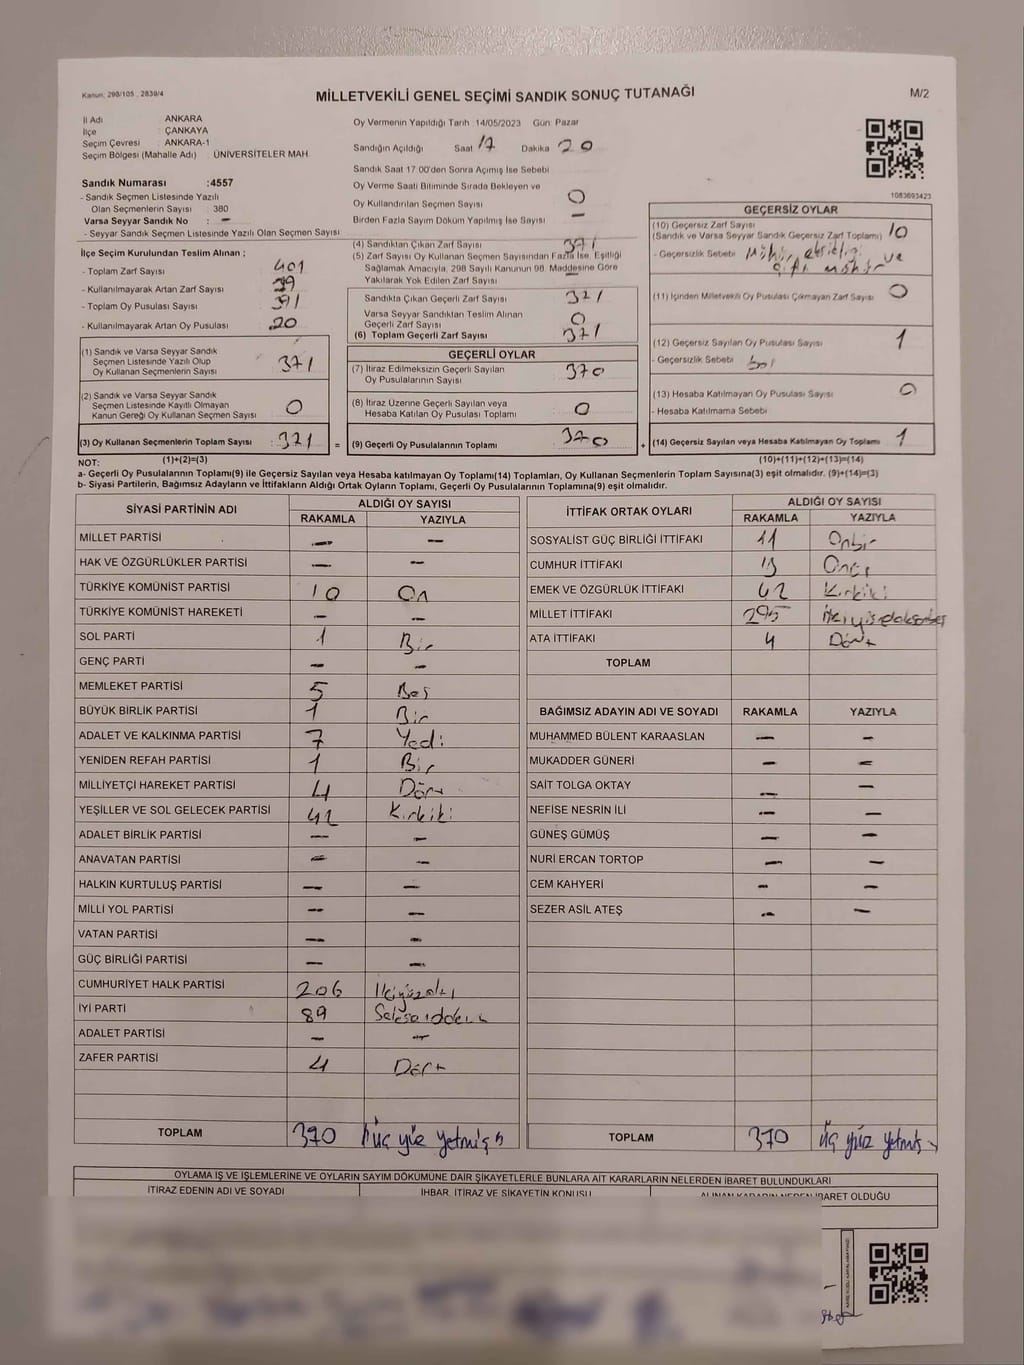 Kanun, 298/105 , 2839/4
MİLLETVEKİLİ GENEL SEÇİMİ SANDIK SONUÇ TUTANAĞI
M/2
İl Adı ANKARA
İlçe ÇANKAYA
Seçim Çevresi ANKARA-1
Seçim Bölgesi (Mahalle Adı) : ÜNİVERSİTELER MAH.
Oy Vermenin Yapıldığı Tarih 14/05/2023 Gün: Pazar
Sandığın Açıldığı Saat 17 Dakika 20
Sandık Saat 17.00'den Sonra Açımış İse Sebebi
Oy Verme Saati Bitiminde Sırada Bekleyen ve
Oy Kullandırılan Seçmen Sayısı 0
Birden Fazla Sayım Döküm Yapılmış İse Sayısı –
1083693423
Sandık Numarası :4557
- Sandık Seçmen Listesinde Yazılı
Olan Seçmenlerin Sayısı : 380
Varsa Seyyar Sandık No : –
- Seyyar Sandık Seçmen Listesinde Yazılı Olan Seçmen Sayısı :
İlçe Seçim Kurulundan Teslim Alınan ;
- Toplam Zarf Sayısı : 401
- Kullanılmayarak Artan Zarf Sayısı :
- Toplam Oy Pusulası Sayısı : 391
- Kullanılmayarak Artan Oy Pusulası : 20
(1) Sandık ve Varsa Seyyar Sandık
Seçmen Listesinde Yazılı Olup
Oy Kullanan Seçmenlerin Sayısı : 371
(2) Sandık ve Varsa Seyyar Sandık
Seçmen Listesinde Kayıtlı Olmayan
Kanun Gereği Oy Kullanan Seçmen Sayısı : 0
(3) Oy Kullanan Seçmenlerin Toplam Sayısı : 371 =
(1)+(2)=(3)
(4) Sandıktan Çıkan Zarf Sayısı 371
(5) Zarf Sayısı Oy Kullanan Seçmen Sayısından Fazla İse, Eşitliği
Sağlamak Amacıyla, 298 Sayılı Kanunun 98. Maddesine Göre
Yakılarak Yok Edilen Zarf Sayısı –
Sandıkta Çıkan Geçerli Zarf Sayısı 371
Varsa Seyyar Sandıktan Teslim Alınan
Geçerli Zarf Sayısı 0
(6) Toplam Geçerli Zarf Sayısı 371
GEÇERLİ OYLAR
(7) İtiraz Edilmeksizin Geçerli Sayılan
Oy Pusulalarının Sayısı 370
(8) İtiraz Üzerine Geçerli Sayılan veya
Hesaba Katılan Oy Pusulası Toplamı 0
(9) Geçerli Oy Pusulalarının Toplamı 370 +
GEÇERSİZ OYLAR
(10) Geçersiz Zarf Sayısı
(Sandık ve Varsa Seyyar Sandık Geçersiz Zarf Toplamı) 10
- Geçersizlik Sebebi Mühür eksikliği ve
çift mühür
(11) İçinden Milletvekili Oy Pusulası Çıkmayan Zarf Sayısı 0
(12) Geçersiz Sayılan Oy Pusulası Sayısı 1
- Geçersizlik Sebebi boş
(13) Hesaba Katılmayan Oy Pusulası Sayısı 0
- Hesaba Katılmama Sebebi
(14) Geçersiz Sayılan veya Hesaba Katılmayan Oy Toplamı 1
(10)+(11)+(12)+(13)=(14)
NOT:
a- Geçerli Oy Pusulalarının Toplamı(9) ile Geçersiz Sayılan veya Hesaba katılmayan Oy Toplamı(14) Toplamları, Oy Kullanan Seçmenlerin Toplam Sayısına(3) eşit olmalıdır. (9)+(14)=(3)
b- Siyasi Partilerin, Bağımsız Adayların ve İttifakların Aldığı Ortak Oyların Toplamı, Geçerli Oy Pusulalarının Toplamına(9) eşit olmalıdır.
SİYASİ PARTİNİN ADI ALDIĞI OY SAYISI
RAKAMLA YAZIYLA
MİLLET PARTİSİ – –
HAK VE ÖZGÜRLÜKLER PARTİSİ – –
TÜRKİYE KOMÜNİST PARTİSİ 10 On
TÜRKİYE KOMÜNİST HAREKETİ – –
SOL PARTİ 1 Bir
GENÇ PARTİ – –
MEMLEKET PARTİSİ 5 Beş
BÜYÜK BİRLİK PARTİSİ 1 Bir
ADALET VE KALKINMA PARTİSİ 7 Yedi
YENİDEN REFAH PARTİSİ 1 Bir
MİLLİYETÇİ HAREKET PARTİSİ 4 Dört
YEŞİLLER VE SOL GELECEK PARTİSİ 42 Kırkiki
ADALET BİRLİK PARTİSİ – –
ANAVATAN PARTİSİ – –
HALKIN KURTULUŞ PARTİSİ – –
MİLLİ YOL PARTİSİ – –
VATAN PARTİSİ – –
GÜÇ BİRLİĞİ PARTİSİ – –
CUMHURİYET HALK PARTİSİ 206 İkiyüzaltı
İYİ PARTİ 89 Seksendokuz
ADALET PARTİSİ – –
ZAFER PARTİSİ 4 Dört
TOPLAM 370 üç yüz yetmiş
İTTİFAK ORTAK OYLARI ALDIĞI OY SAYISI
RAKAMLA YAZIYLA
SOSYALİST GÜÇ BİRLİĞİ İTTİFAKI 11 Onbir
CUMHUR İTTİFAKI 13 Onüç
EMEK VE ÖZGÜRLÜK İTTİFAKI 42 Kırkiki
MİLLET İTTİFAKI 295 İkiyüzdoksanbeş
ATA İTTİFAKI 4 Dört
TOPLAM
BAĞIMSIZ ADAYIN ADI VE SOYADI RAKAMLA YAZIYLA
MUHAMMED BÜLENT KARAASLAN – –
MUKADDER GÜNERİ – –
SAİT TOLGA OKTAY – –
NEFİSE NESRİN İLİ – –
GÜNEŞ GÜMÜŞ – –
NURİ ERCAN TORTOP – –
CEM KAHYERİ – –
SEZER ASİL ATEŞ – –
TOPLAM 370 üç yüz yetmiş
OYLAMA İŞ VE İŞLEMLERİNE VE OYLARIN SAYIM DÖKÜMÜNE DAİR ŞİKAYETLERLE BUNLARA AİT KARARLARIN NELERDEN İBARET BULUNDUKLARI
İTİRAZ EDENİN ADI VE SOYADI İHBAR, İTİRAZ VE ŞİKAYETİN KONUSU ALINAN KARARIN NEDEN İBARET OLDUĞU